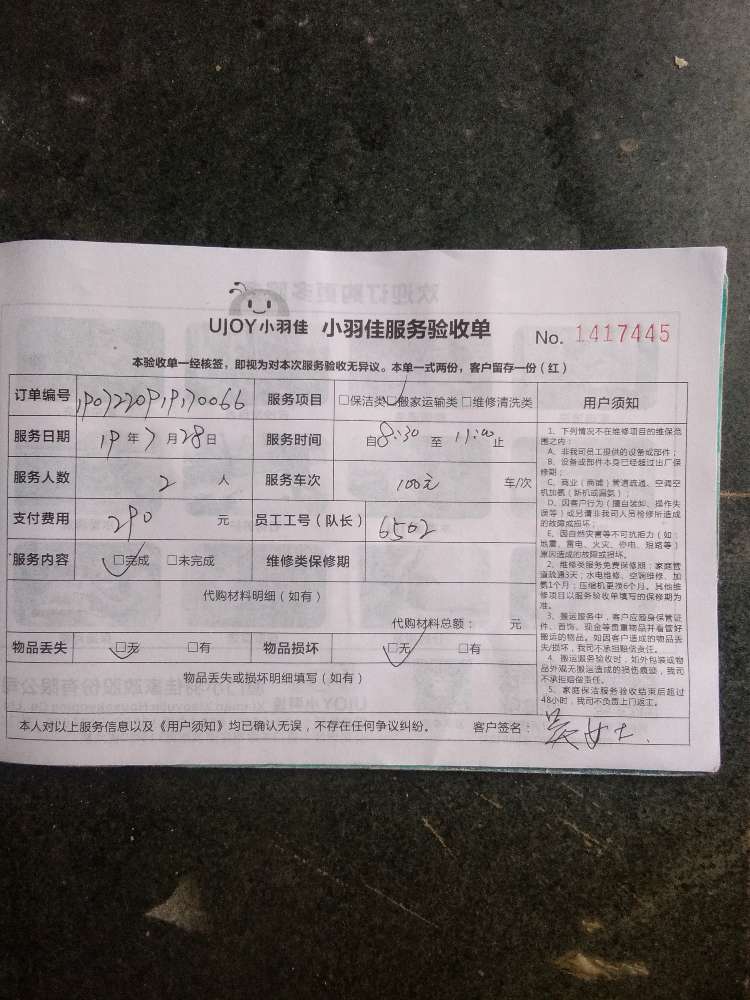 UJOY小羽佳 小羽佳服务验收单 No. 1417445
本验收单一经核签，即视为对本次服务验收无异议。本单一式两份，客户留存一份（红）
订单编号 服务项目 □保洁类□搬家运输类□维修清洗类 用户须知
服务日期 19年7月28日 服务时间 自8:30至11:00止
服务人数 2人 服务车次 100元 车/次
支付费用 290元 员工工号（队长） 6502
服务内容 □完成 □未完成 维修类保修期
代购材料明细（如有）
代购材料总额： 元
物品丢失 □无 □有 物品损坏 □无 □有
物品丢失或损坏明细填写（如有）
本人对以上服务信息以及《用户须知》均已确认无误，不存在任何争议纠纷。 客户签名：吴女士.
1、下列情况不在维修项目的维保范
围之内：
A、非我司员工提供的设备或部件；
B、设备或部件本身已经超过出厂保
修期；
C、商业（商铺）管道疏通、空调空
机加氨（新机或漏氨）；
D、因客户行为（擅自装卸、操作失
误等）或另请非我司人员检修所造成
的故障或损坏；
E、因自然灾害等不可抗拒力（如：
地震、雷电、火灾、停电、短路等）
原因造成的故障或损坏。
2、维修类服务免费保修期：家庭管
道疏通3天；水电维修、空调维修、加
氨1个月；压缩机更换6个月。其他维
修项目以服务验收单填写的保修期为
准。
3、搬运服务中，客户应随身保管证
件、首饰、现金等贵重物品并看管好
搬运的物品。如因客户造成的物品丢
失/损坏，我司不承担赔偿责任。
4、搬运服务验收时，如外包装或物
品外观无搬运造成的损伤痕迹，我司
不承担赔偿责任。
5、家庭保洁服务验收结束后超过
48小时，我司不负责上门返工。